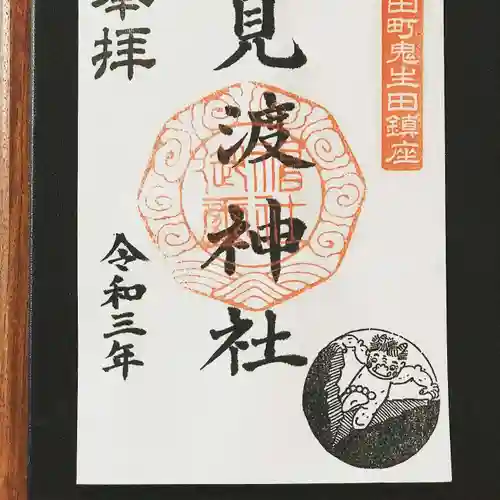 田町鬼生田鎮座
見渡神社
奉拝
令和三年